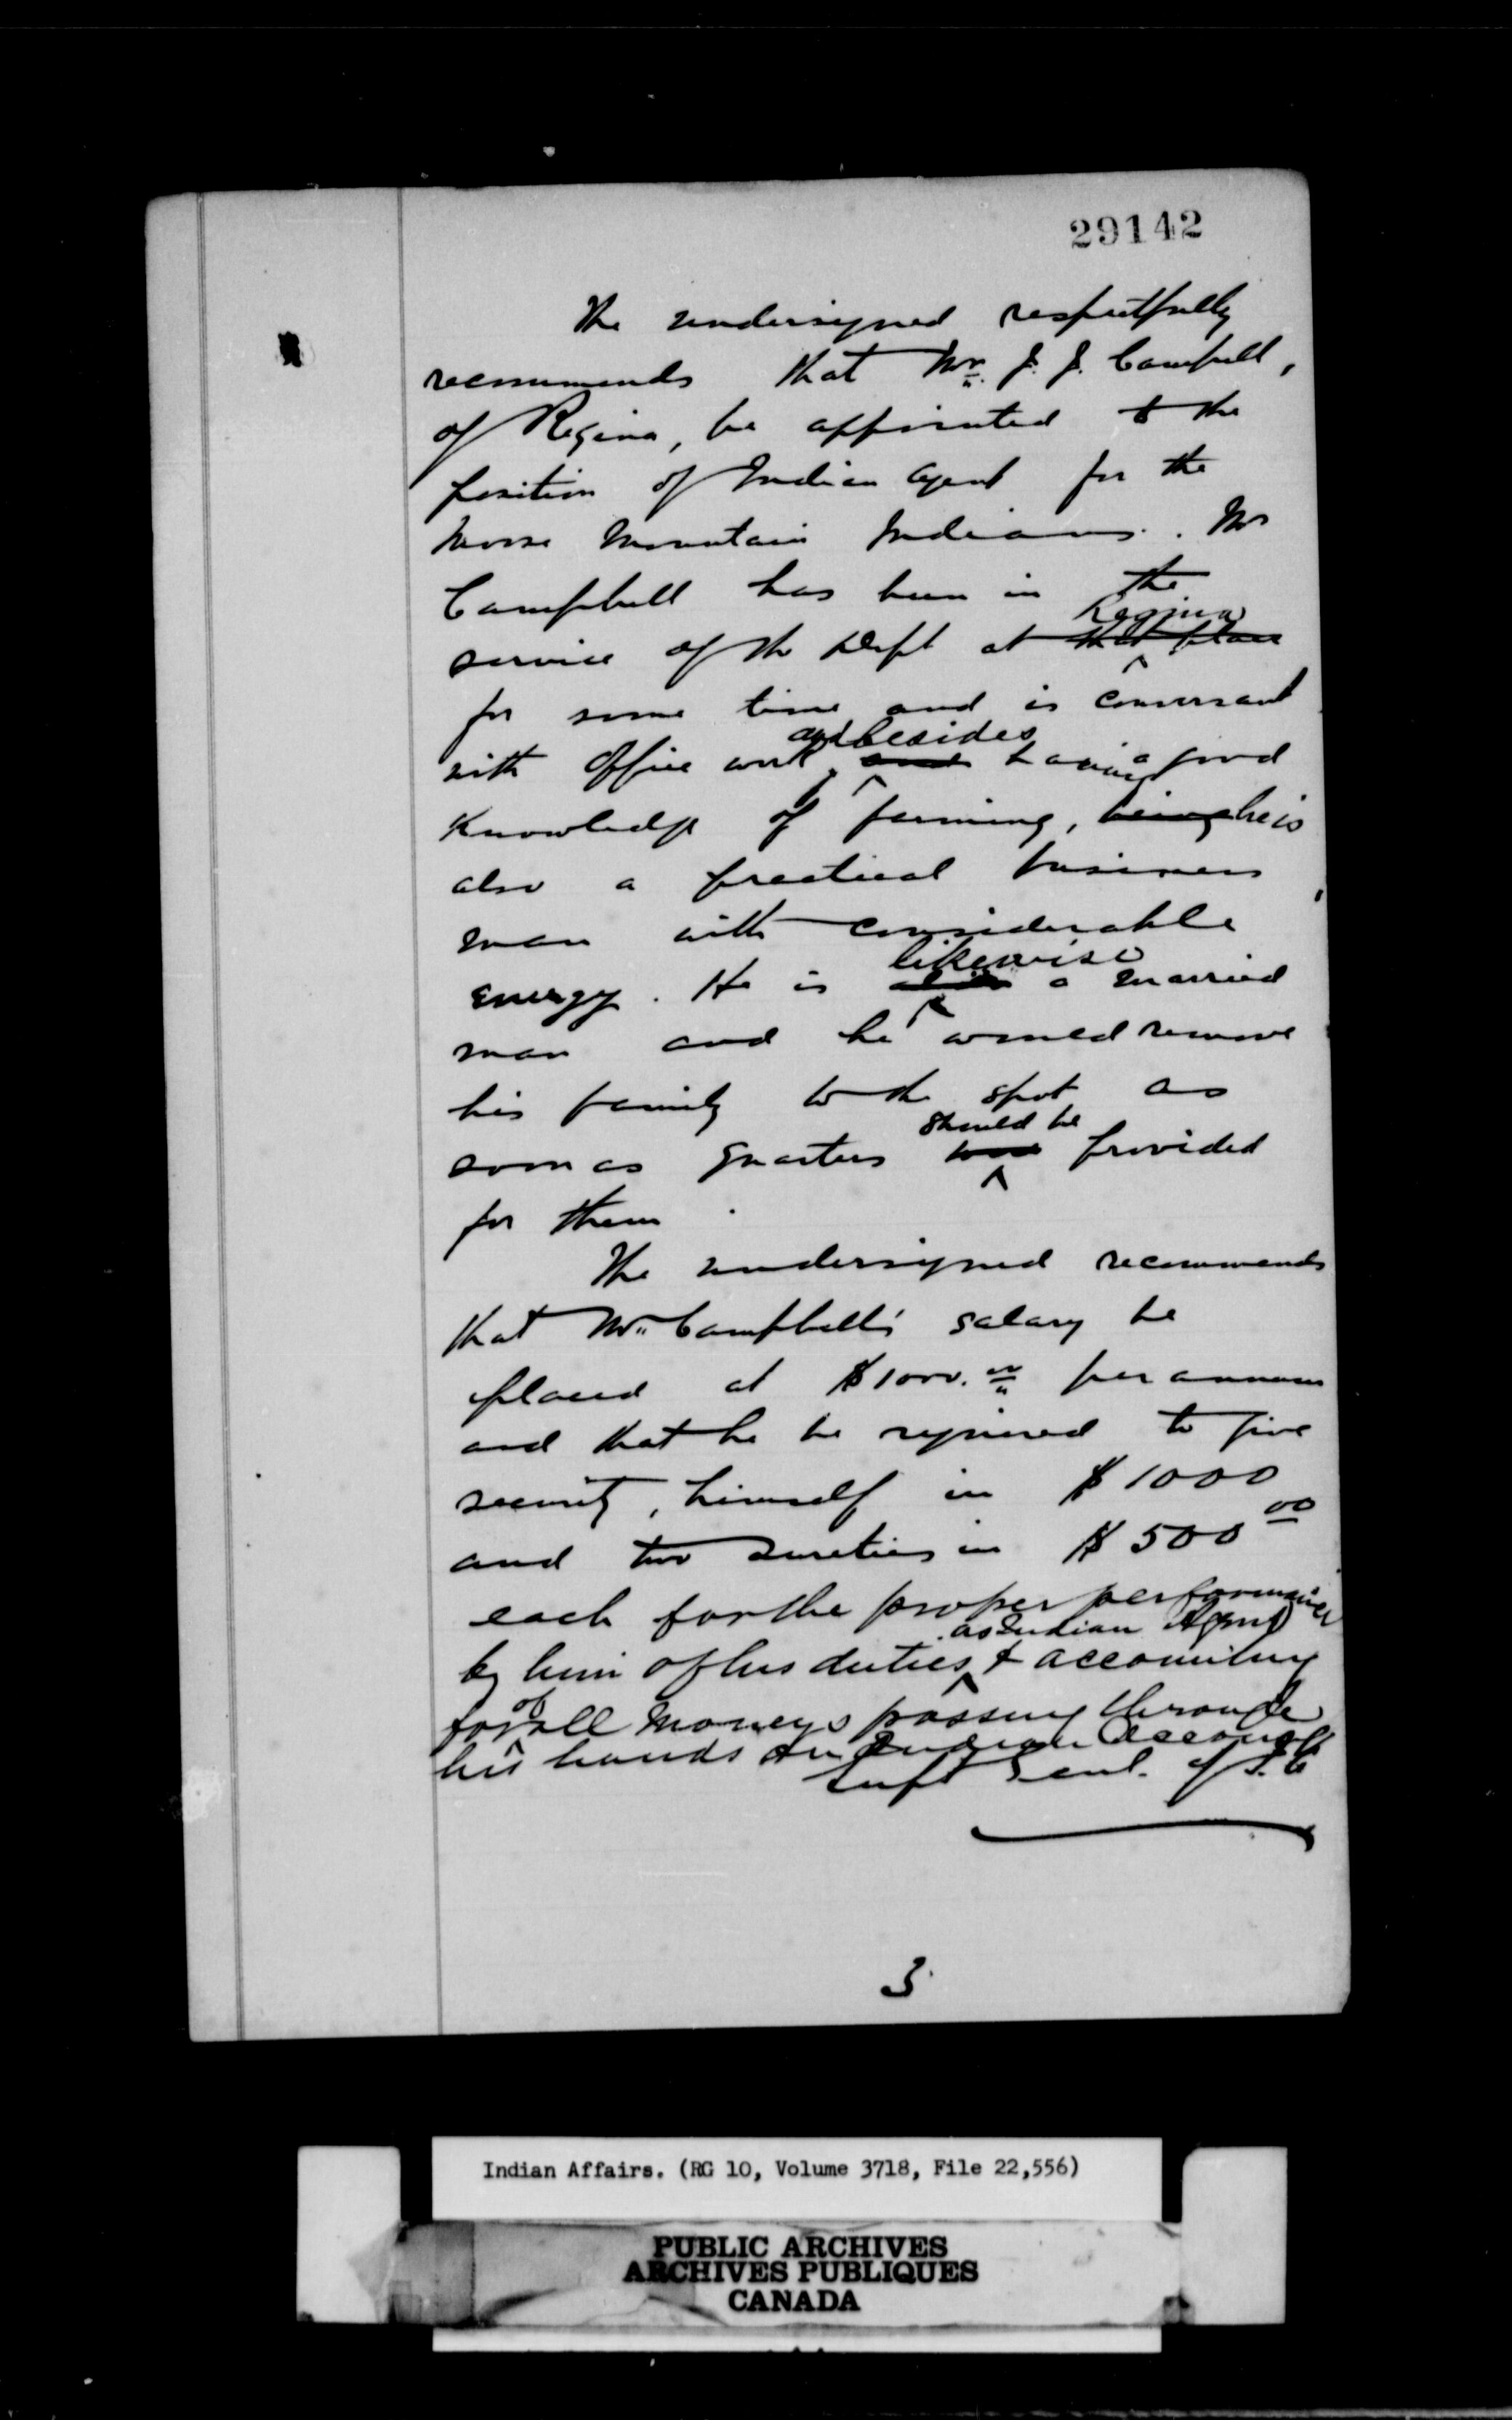 29142
The undersigned respectfully
recommends that Mr. J. J. Campbell,
of Regina, be appointed to the
position of Indian Agent for the
Moose Mountain Indians. Mr
Campbell has been in the
Regina
service of the Dept at that place
for some time and is conversant
and besides
with Office work, and having a good
knowledge of farming, being he is
also a practical business
man with considerable
likewise
energy. He is also a married
man and he would remove
his family to the spot as
should be
soon as quarters were provided
for them.
The undersigned recommends
that Mr. Campbell's salary be
placed at $1000.00 per annum
and that he be required to give
security, himself in $1000
and two sureties in $500 00
each for the proper performance
as Indian Agent
by him of his duties & accounting
of
for all moneys passing through
his hands on Indian account
Supt Genl. of I. A
3
Indian Affairs. (RG 10, Volume 3718, File 22,556)
PUBLIC ARCHIVES
ARCHIVES PUBLIQUES
CANADA